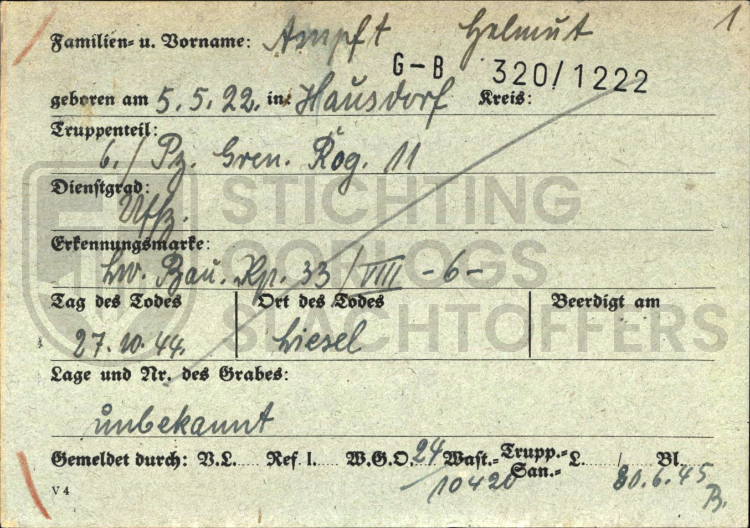 1.
Familien- u. Vorname: Ampft Helmut
G-B 320/1222
geboren am 5.5.22. in: Hausdorf Kreis:
Truppenteil:
6./ Pz. Gren. Rog. 11
Dienstgrad:
Uffz.
Erkennungsmarke:
Lw. Bau. Kp. 33/VIII -6-
Tag des Todes Ort des Todes Beerdigt am
27.10.44. Liesel
Lage und Nr. des Grabes:
unbekannt
Gemeldet durch: V.L. Ref. I. W.G.O. 24 Wast.- Trupp.- San.- L. / Bl.
10420 30.6.45
B.
V 4
STICHTING
OORLOGS
SLACHTOFFERS